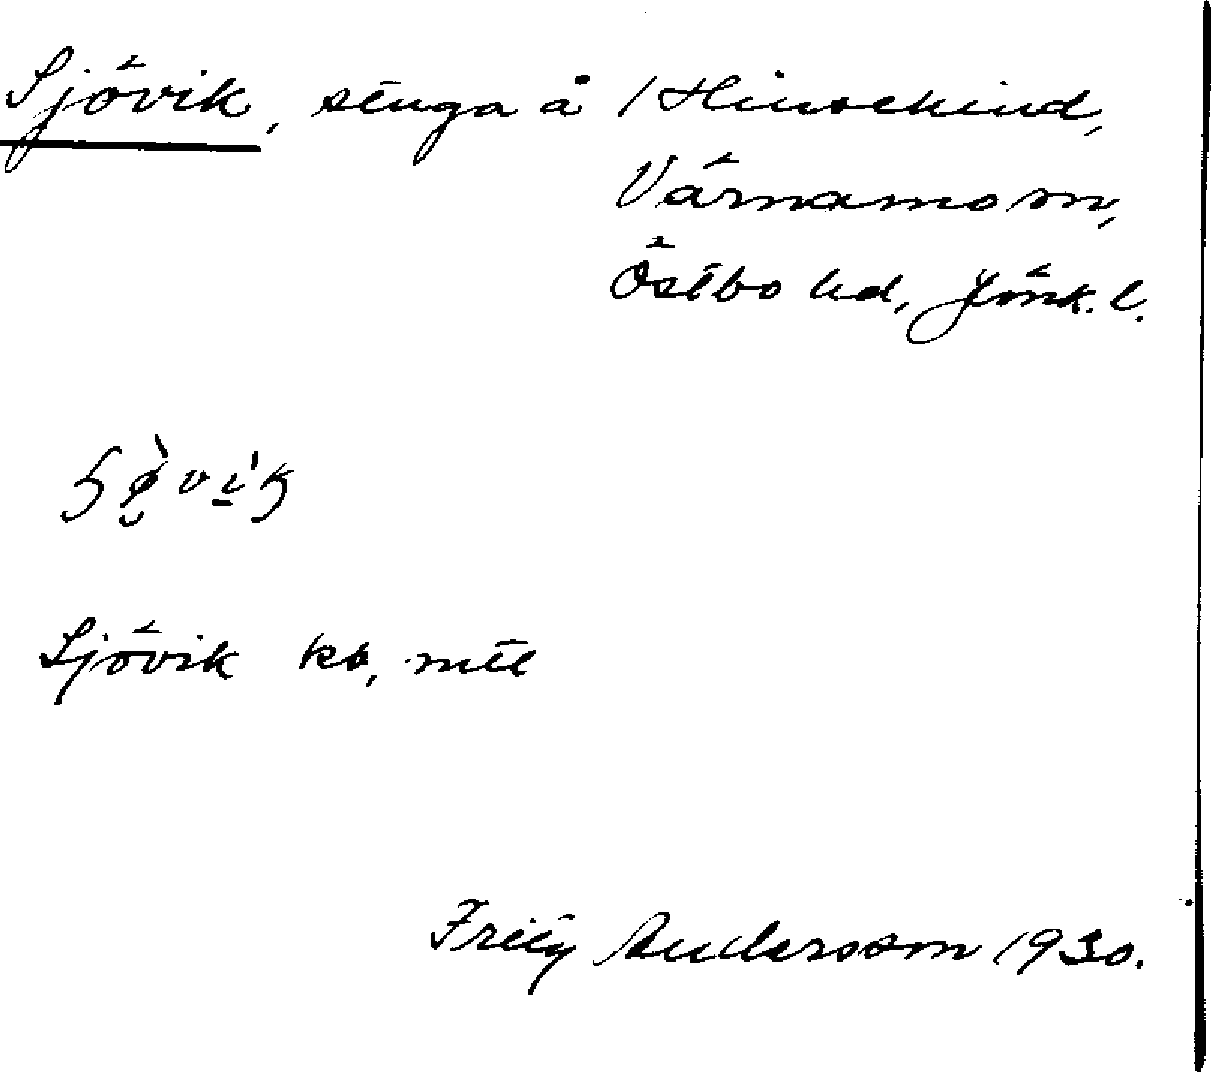 Sjövik, stuga å /Hinsekind,
Värnamo sn,
Östbo hd, Jönk. l.
Sjövik kb, mtl
Frity Andersson 1930.